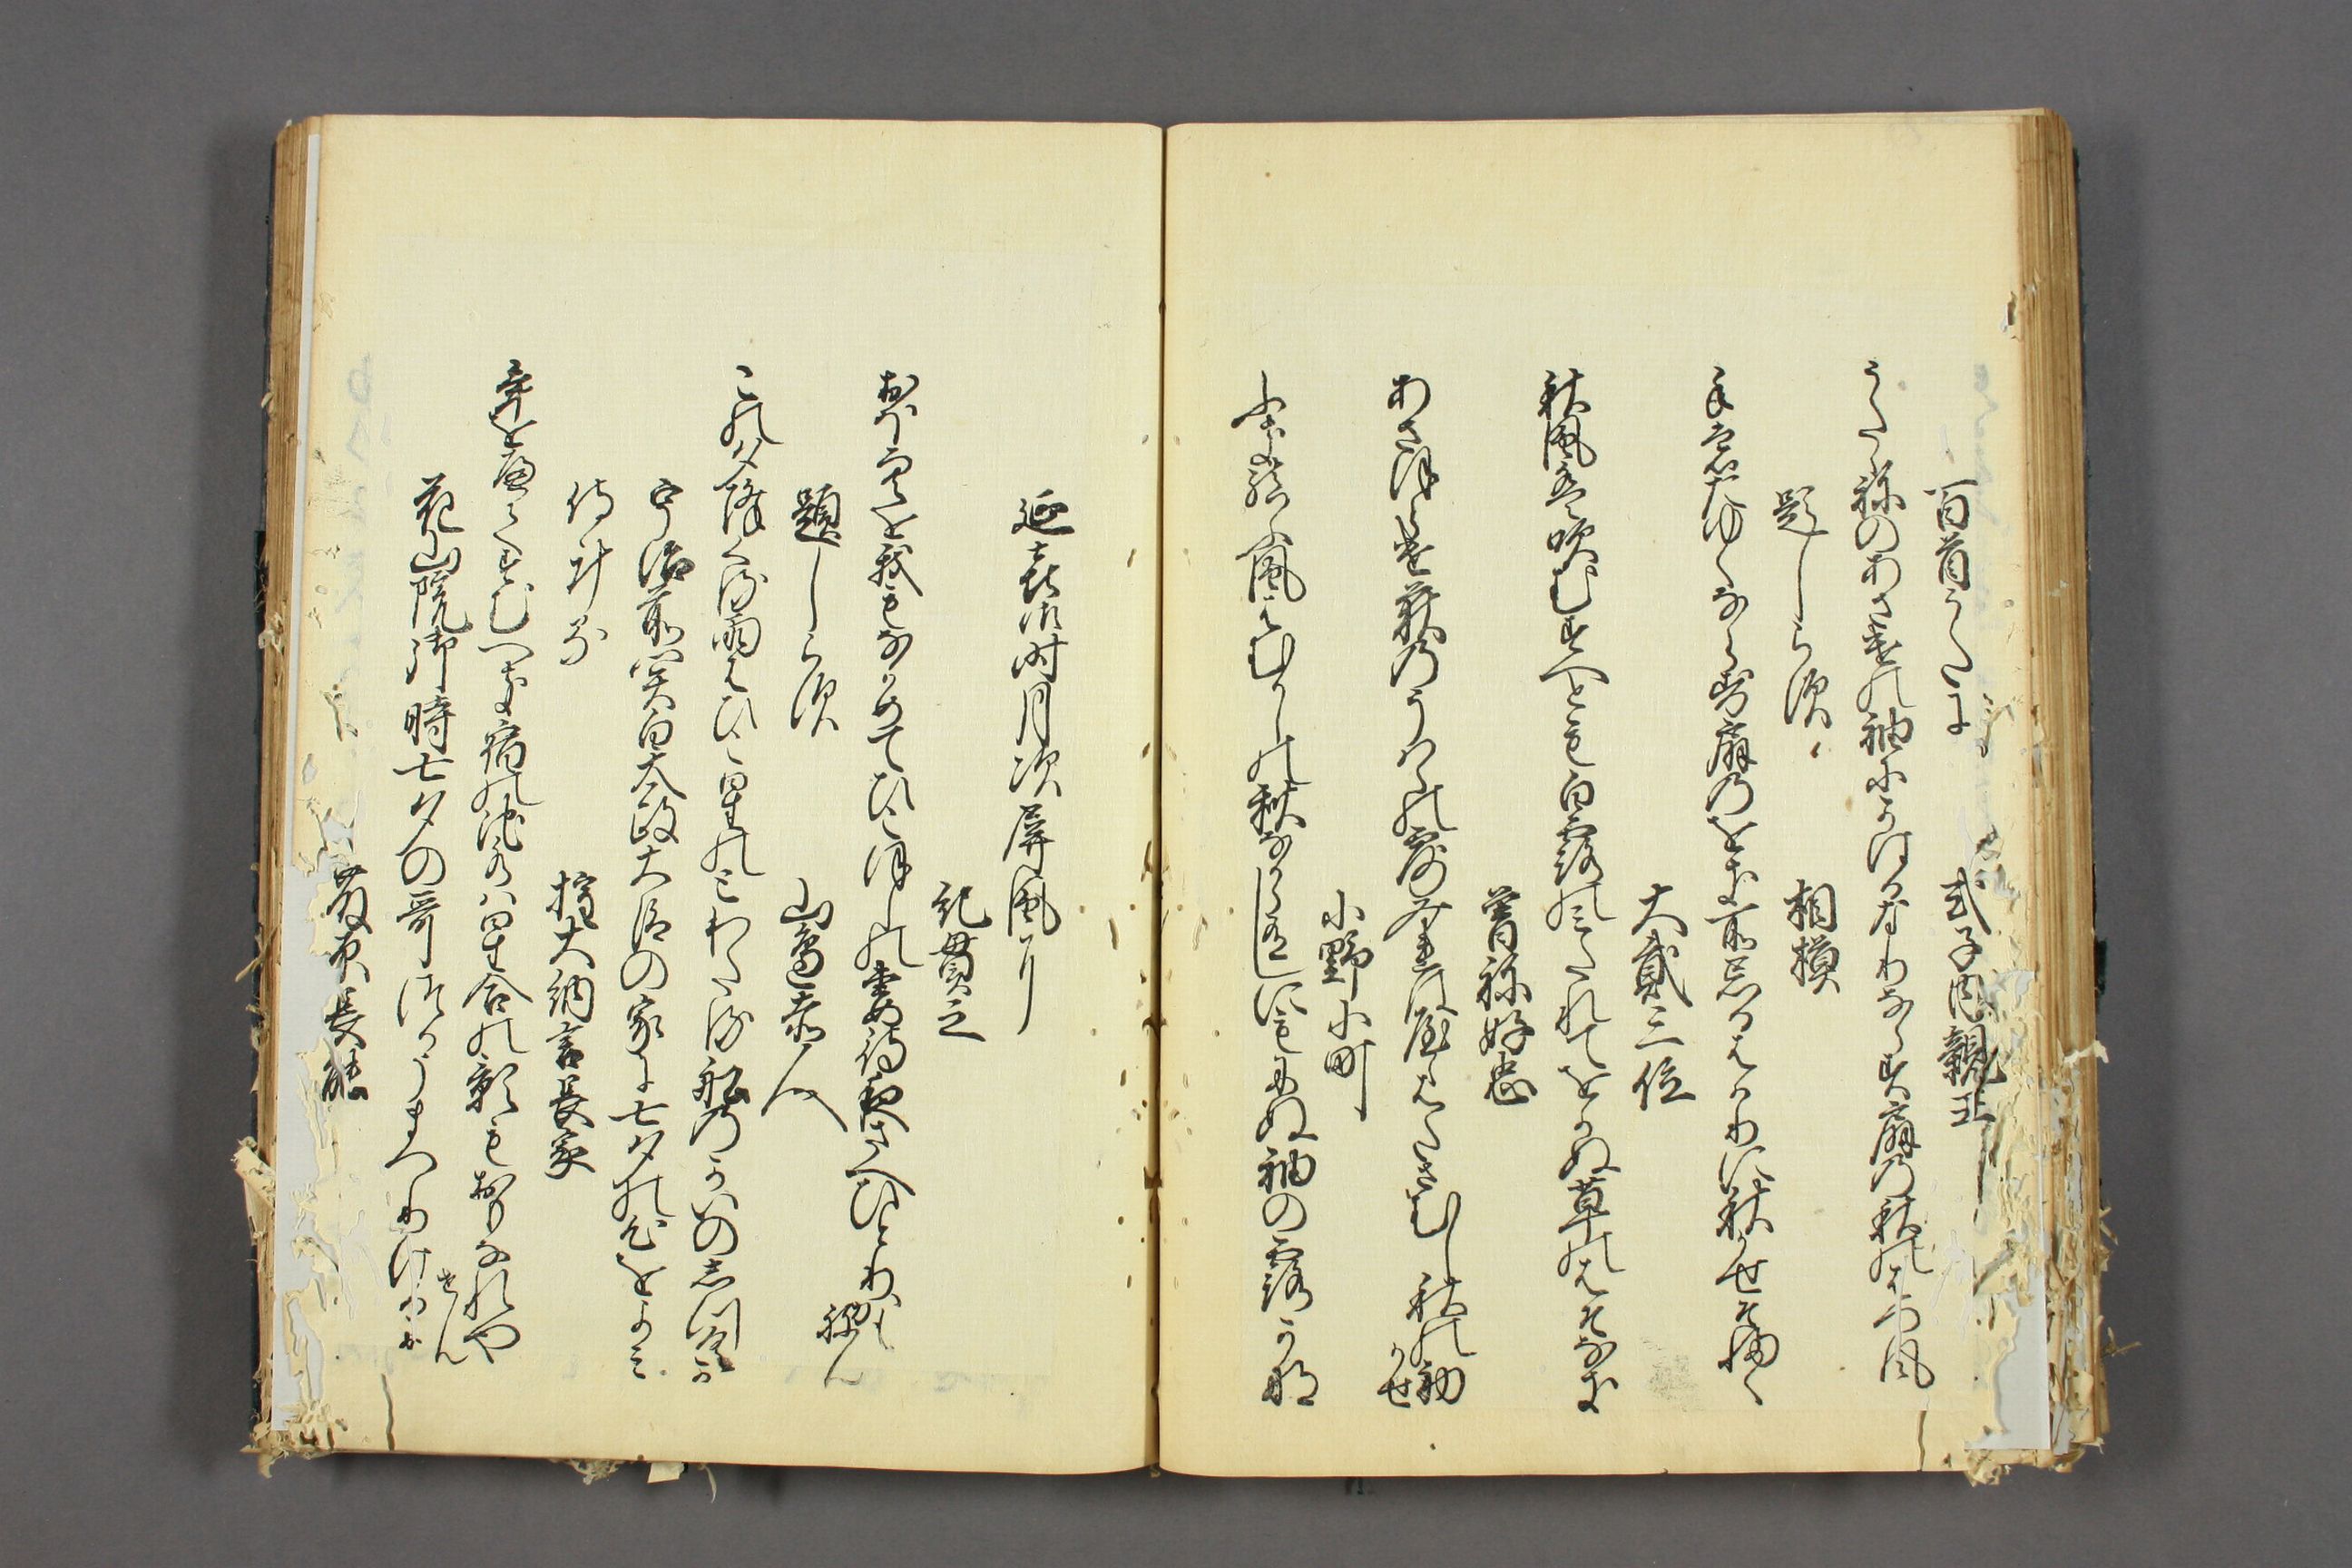 百首うたに
式子内親王
うたゝ祢のあさ遣の袖にかはるなりならす扇の秋のはつ風
題しら須
相摸
手もたゆくならす扇のをき所忘るはかりに秋かせそ婦く
大貳三位
秋風は吹むすへとも白露のみたれてをかぬ草のはそなき
曾祢好忠
あさほらけ荻のうは葉の露みれはやゝはたさむし秋の初かせ
小野小町
ふきむすふ風はむかしの秋なからありしにもにぬ袖の露かな
延喜御時月次屏風に
紀貫之
おほ空を我もなかめてひこほしの妻待夜さへひとりかもねん
題しら須
山邊赤人
この夕降くる雨はひこ星のとわたる舩のかいのしつくか
宇治前関白太政大臣の家に七夕の心をよみ
侍けるに
権大納言長家
年をへてすむへき宿の池水は星合の影もおもなれやせん
花山院御時七夕の哥つかうまつりけるに
藤原長能